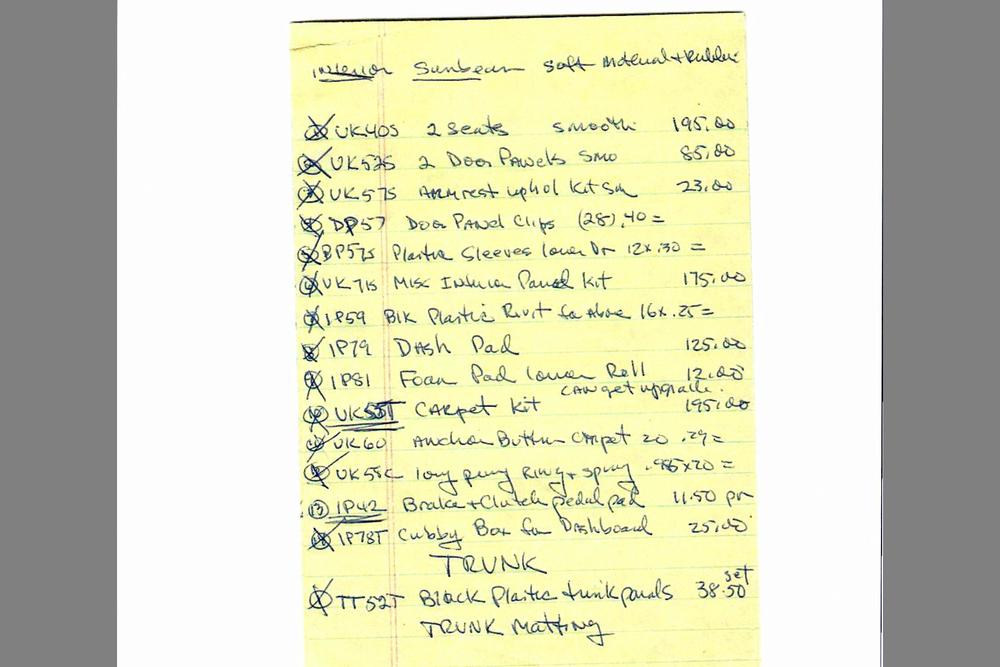 Interior Sunbeam Soft Material + Rubber
1 UK40S 2 Seats Smooth 195.00
2 UK52S 2 Door Panels Smo 85.00
3 UK57S Armrest uphol Kit Sm 23.00
4 DP57 Door Panel Clips (28) .40 =
5 BP57S Plastic Sleeves lower Dr 12x.30 =
6 UK71S Misc Interior Panel Kit 175.00
7 IP59 Blk Plastic Rivit for Above 16x.25 =
8 IP79 Dash Pad 125.00
9 IP81 Foam Pad lower Roll 12.00
CAN get upgrade.
10 UK55T CArpet Kit 195.00
11 UK60 Anchor Button Carpet 20 .29 =
12 UK55C long Ring + spring .985x20 =
13 IP42 Brake + Clutch pedal pad 11.50 pr
14 IP78T Cubby Box for Dashboard 25.00
TRUNK
TT52T Black Plastic trunk panels 38.50 set
TRUNK Matting